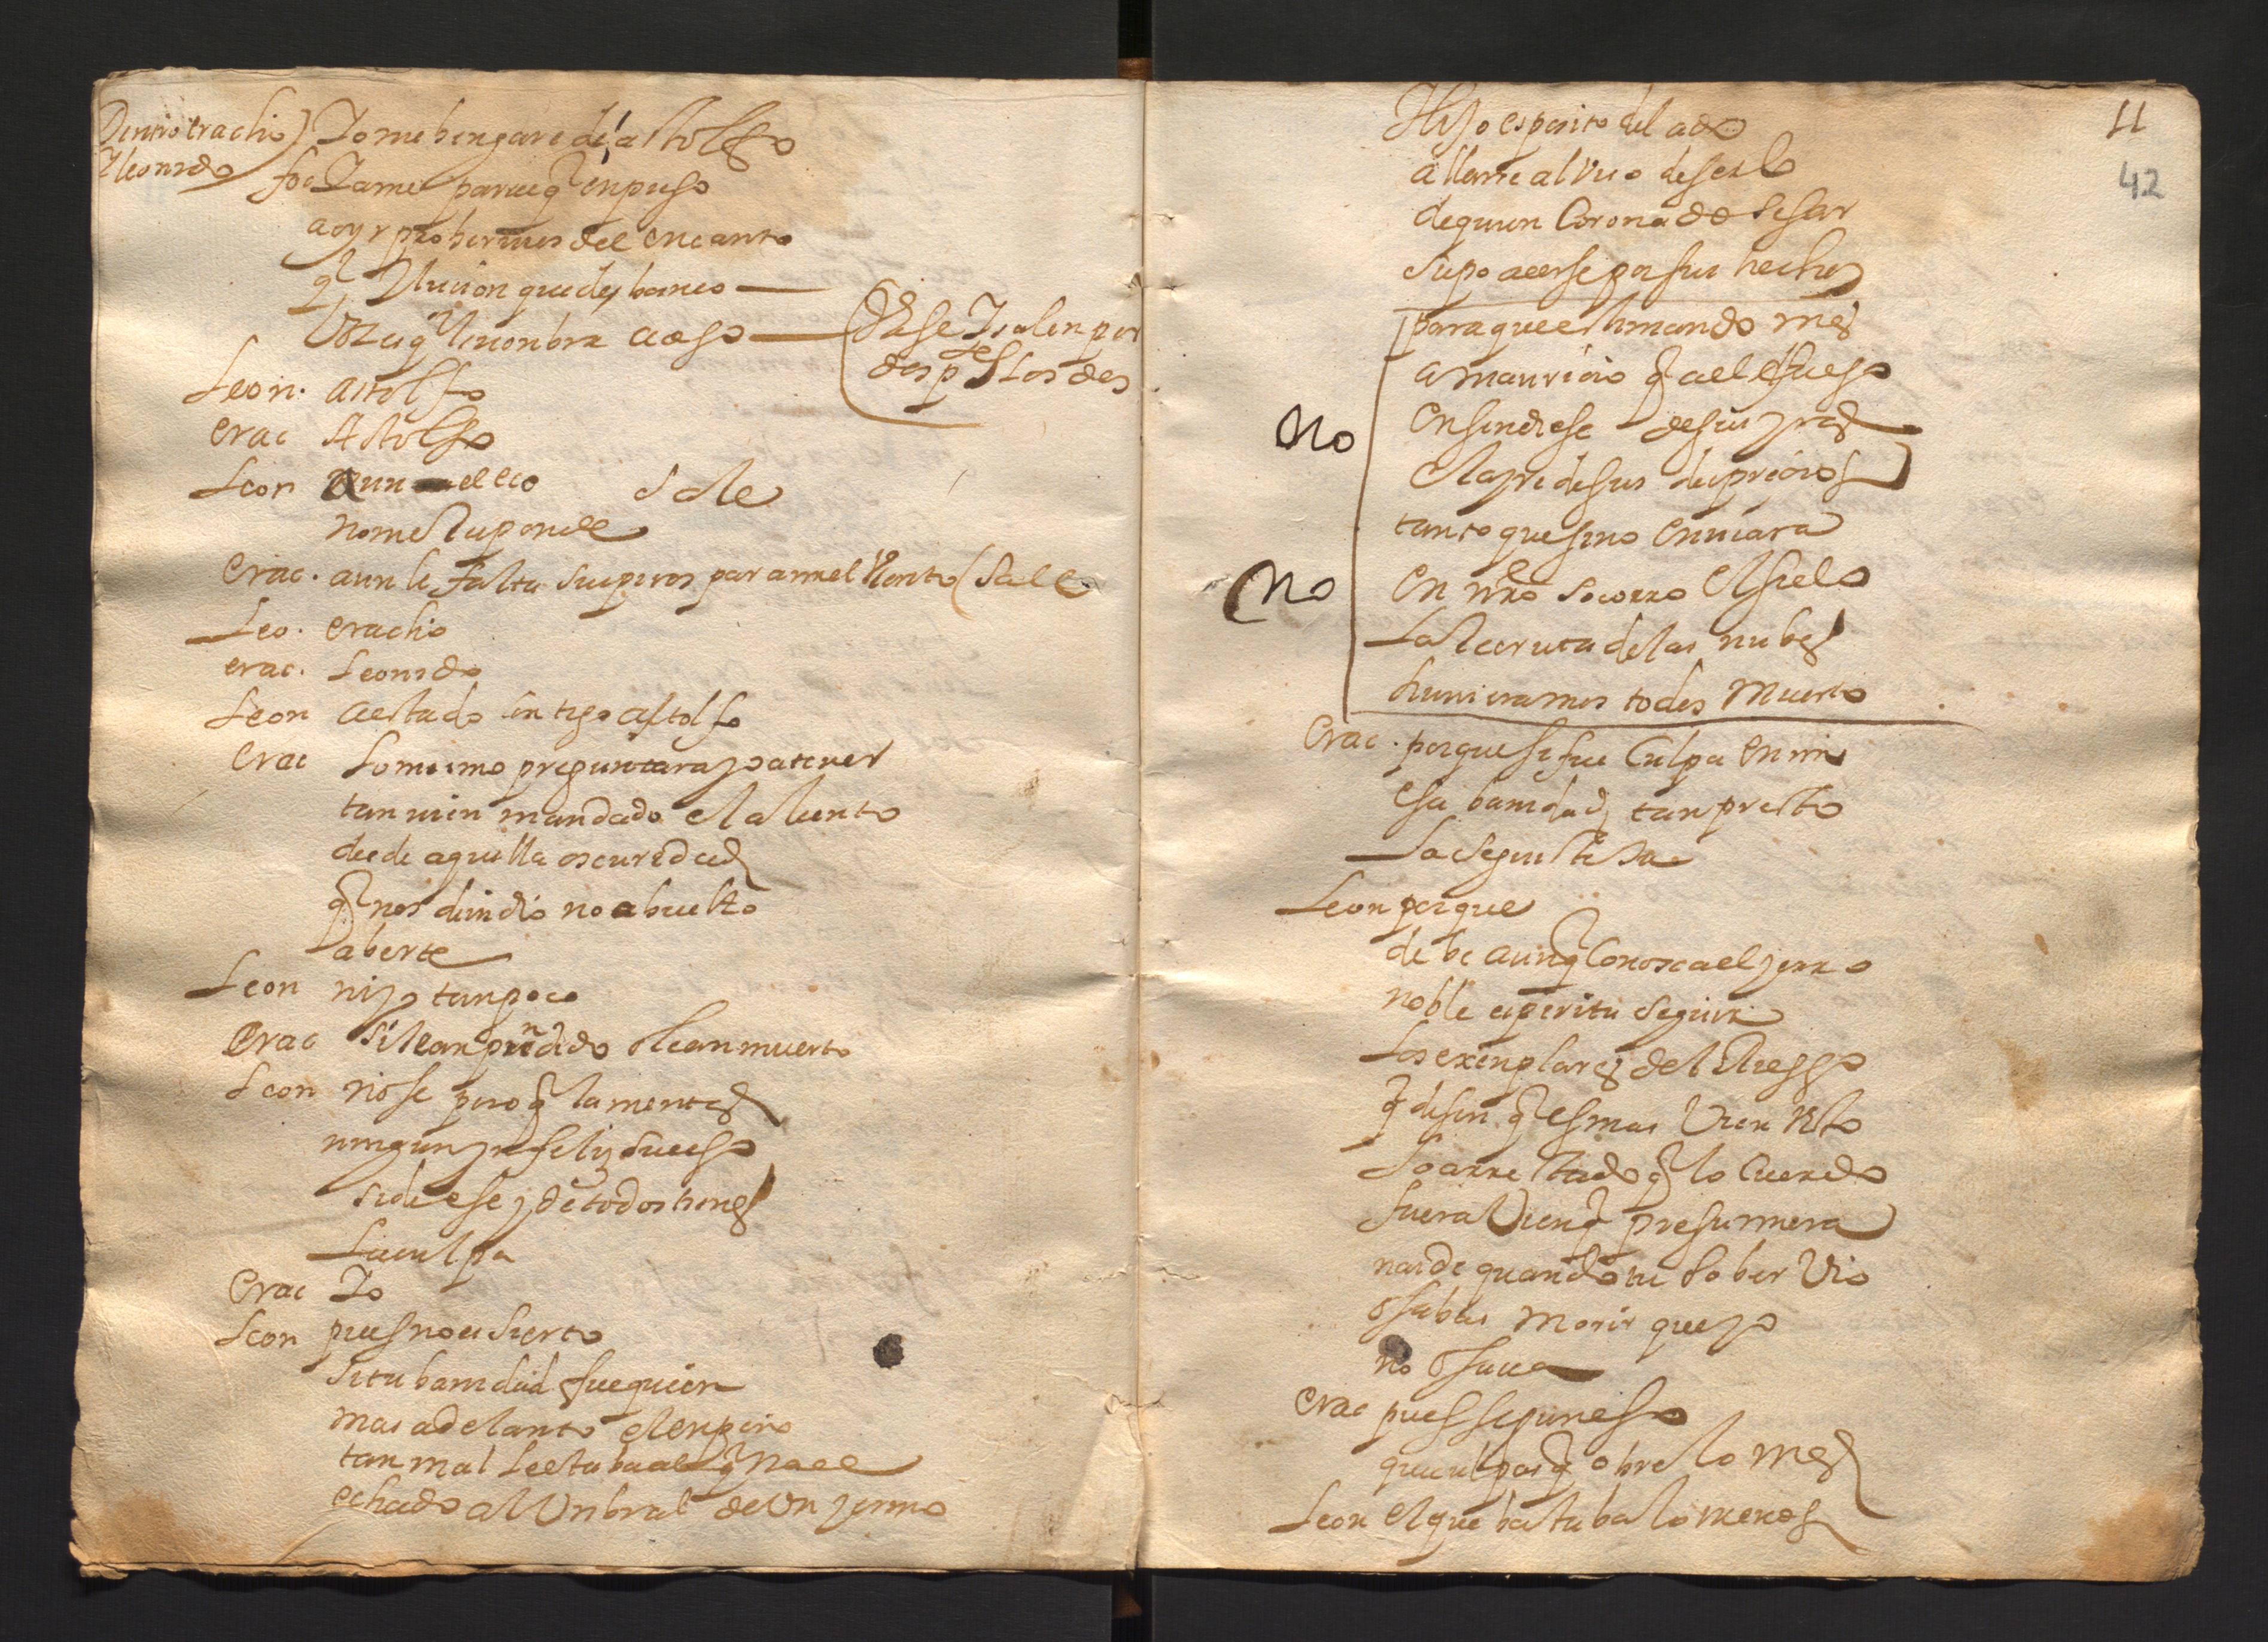 Dentro eraclio
Y leonido
Yo me bengare de astolfo
foc Ya me parece q enpieso
a oyr prohermes del encanto
q Yluçion que desbaneo
Voz es q le nonbra acaso
Vase Y salen por
des pstos dos
Leon. astolfo
erac Astolfo
Leon Aun el eco sale
no me Responde
erac. aun le falta suspiros para mel Viento (Sale
Leo. eraclio
erac. Leonido
Leon a estado contigo astolfo
erac Lo mismo preguntara yo a tener
tan uien mandado el aliento
desde aquella oscuredad
q nos diuidio no a buelto
a berte
Leon ni yo tanpoco
erac si le an prendido o le an muerto
Leon no se pero q lamentes
ningun ynfeliz suceso
si de ese y de todos tienes
La culpa
erac Yo
Leon pues no es sierto
si tu banidad fue quien
mas adelanto el enpeño
tan mal le estaba al q naçe
echado al Vnbral de Vn yermo
11
42
Hijo esposito del ado
allarse al Viso de serlo
de quien Coronado sesar
supo aserse por sus hechos
para que estimando mes
a mauricio q a el el fuego
no
ensendiese de sus yras
el ayre de sus despreçios
tanto que si no enuiara
no
en nro socorro el sielo
La Recruta de las nubes
huuieramos todos Muerto
erac. porque si fue Culpa en mi
esa banidad tan presto
La seguiste Ya
Leon porque
debe aunq Conosca el yerro
noble espiritu seguir
Los exenplares del Riesgo
q disen q es mas Vien Visto
Lo arrestado q lo Cuerdo
fuera Vien q presumiera
naide quando tu soberVio
osabas Morir que yo
no osaua
erac pues segun eso
que culpas q obre lo mes
Leon el que bastaba lo menos